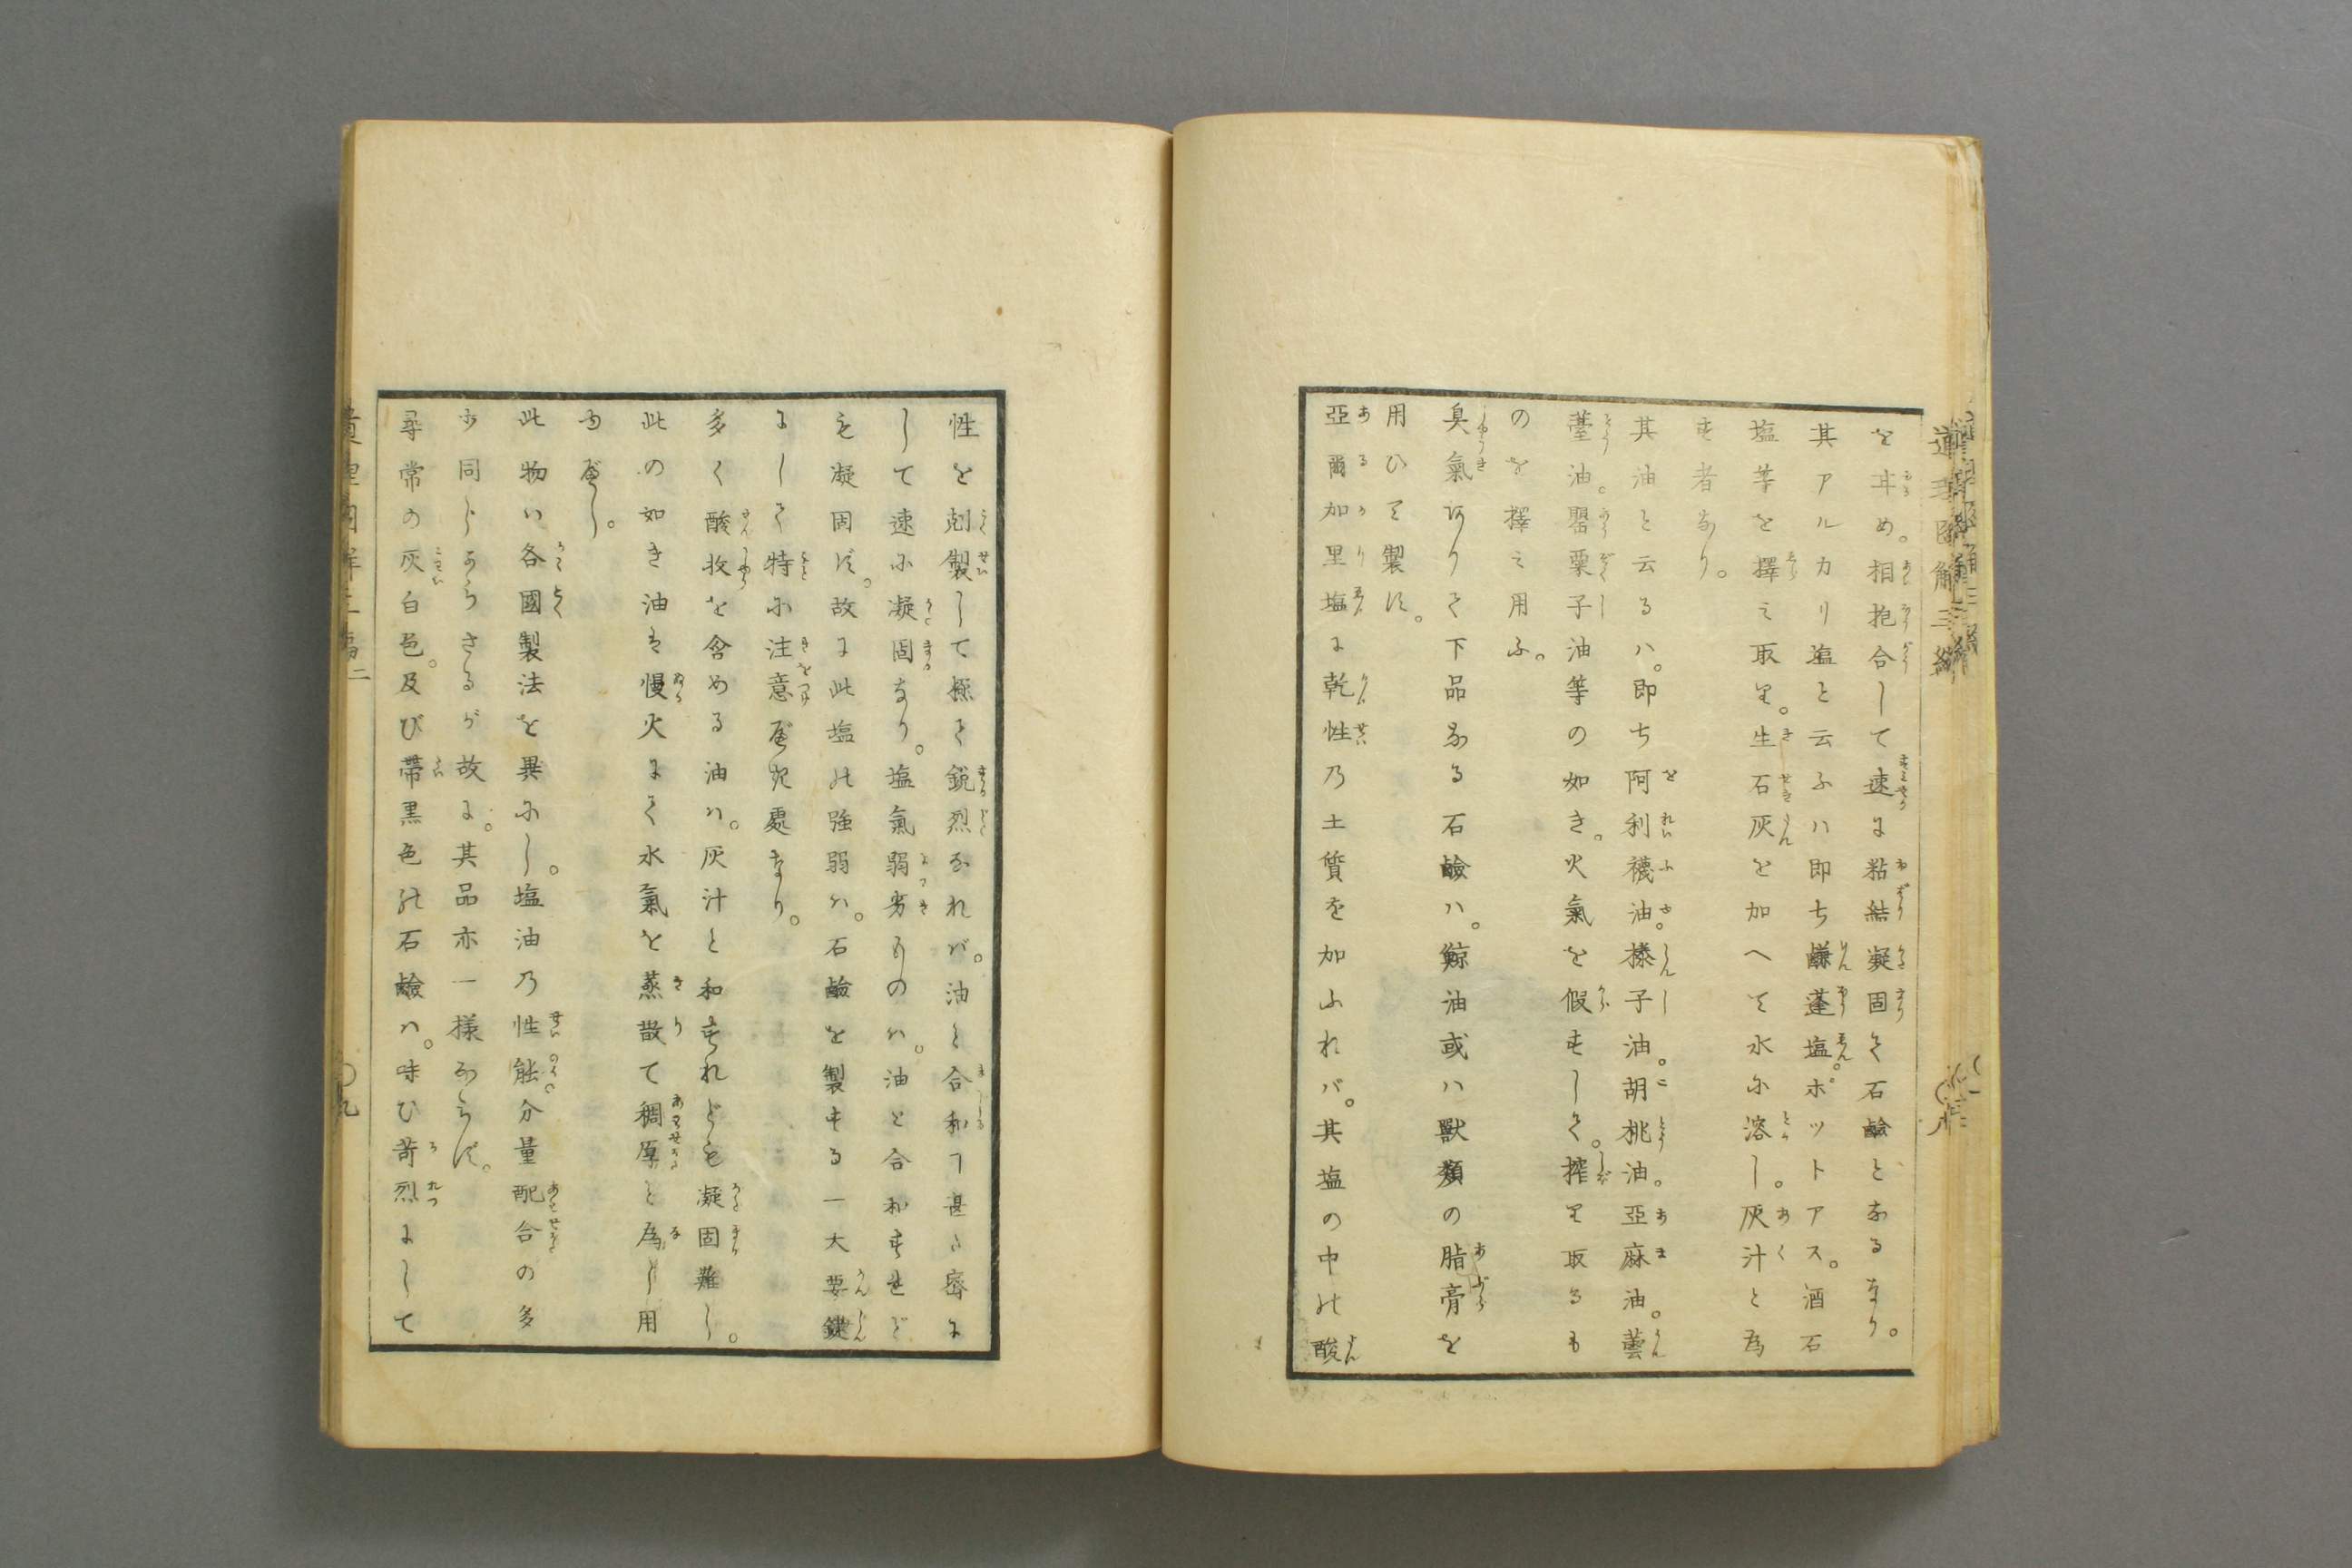 を丼め。相抱合して速に粘結凝固そ石鹸となるなり。
其アルカリ塩と云ふハ即ち鹻蓬塩。ポットアス。酒石
塩等を擇ミ取り。生石灰を加へて水に溶し。灰汁と為
す者なり。
其油と云るハ。即ち阿利襪油。榛子油。胡桃油。亞麻油。蕓
薹油。罌粟子油等の如き。火氣を假すして。搾り取るも
のを擇ミ用ふ。
臭氣ありて下品なる石鹸ハ。鯨油或ハ獸類の脂膏を
用ひて製す。
亞爾加里塩に乾性乃土質を加ふれバ。其塩の中の酸
性を剋製して極て鋭烈なれバ。油と合和て甚く密に
して速に凝固なり。塩氣弱劣ものハ。油と合和すれど
も凝固ず。故に此塩の強弱ハ。石鹸を製する一大要鍵
にして特に注意べき處なり。
多く酸收を含める油ハ。灰汁と和すれども凝固難し。
此の如き油は慢火にて水氣を蒸散て稠厚と為し用
ゆべし。
此物ハ各國製法を異にし。塩油乃性能。分量配合の多
少同じからざるが故に。其品亦一樣ならず。
尋常の灰白色。及び帶黒色の石鹸ハ。味ひ苛烈にして